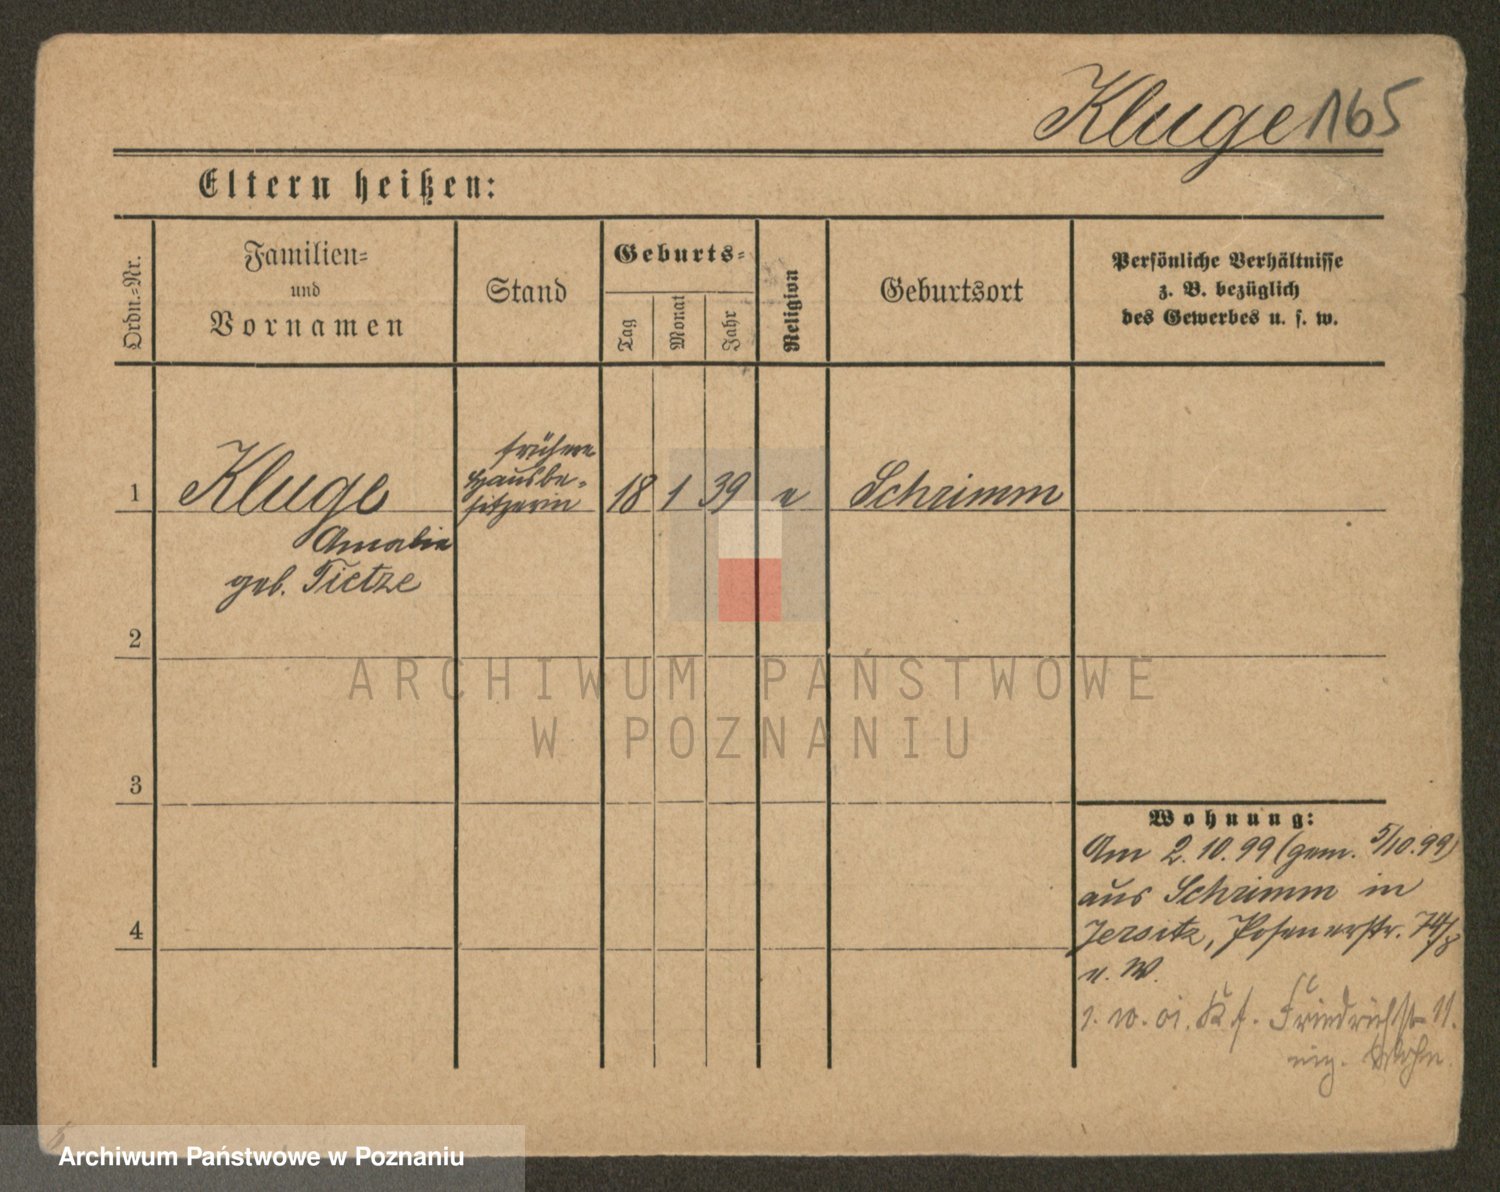 Kluge 1165
Eltern heißen:
Ordn.-Nr.
Familien-
und
Vornamen
Stand
Geburts-
Tag
Monat
Jahr
Religion
Geburtsort
Persönliche Verhältnisse
z. B. bezüglich
des Gewerbes u. s. w.
1
Kluge
Amalie
geb. Tietze
frühere
Hausbe-
sitzerin
18 1 39 e Schrimm
2
3
4
Wohnung:
Am 2.10.99 (gem. 5/10.99)
aus Schrimm in
Jersitz, Posenerstr. 74/8
e. W.
1. 10. 01. Friedrichstr 11.
eig. Wohn.
ARCHIWUM PAŃSTWOWE
W POZNANIU
Archiwum Państwowe w Poznaniu